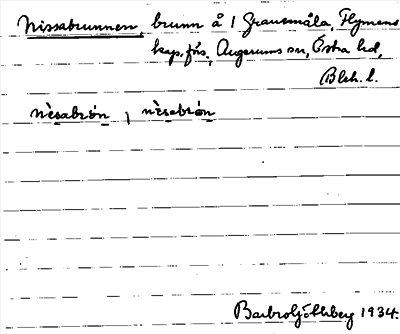 Nissabrunnen, brunn å 1 Gransmåla, Flymens
kap.förs., Augerums sn, Östra hd,
Blek. l.
nìsabrón, nìsabrón
1934.